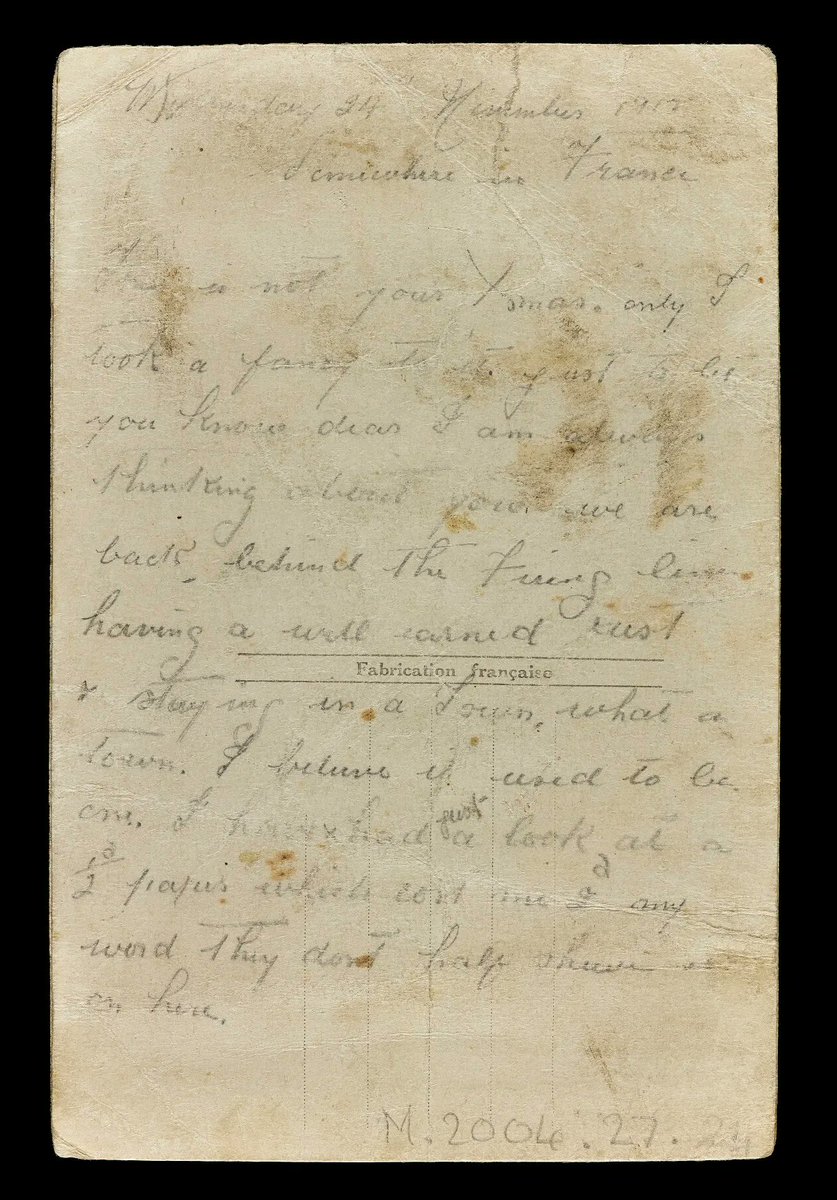 Wednesday 24th November 191
Somewhere in France
This is not your Xmas. only I
took a fancy to it. just to let
you know dear I am always
thinking about you. we are
back behind the Firing line
having a well earned rest
& staying in a Town, what a
town. I believe it used to be
one. I have had just a look at a
½d paper which cost me 2d my
word they dont half shove it
on here.
Fabrication française
M.2004.27.